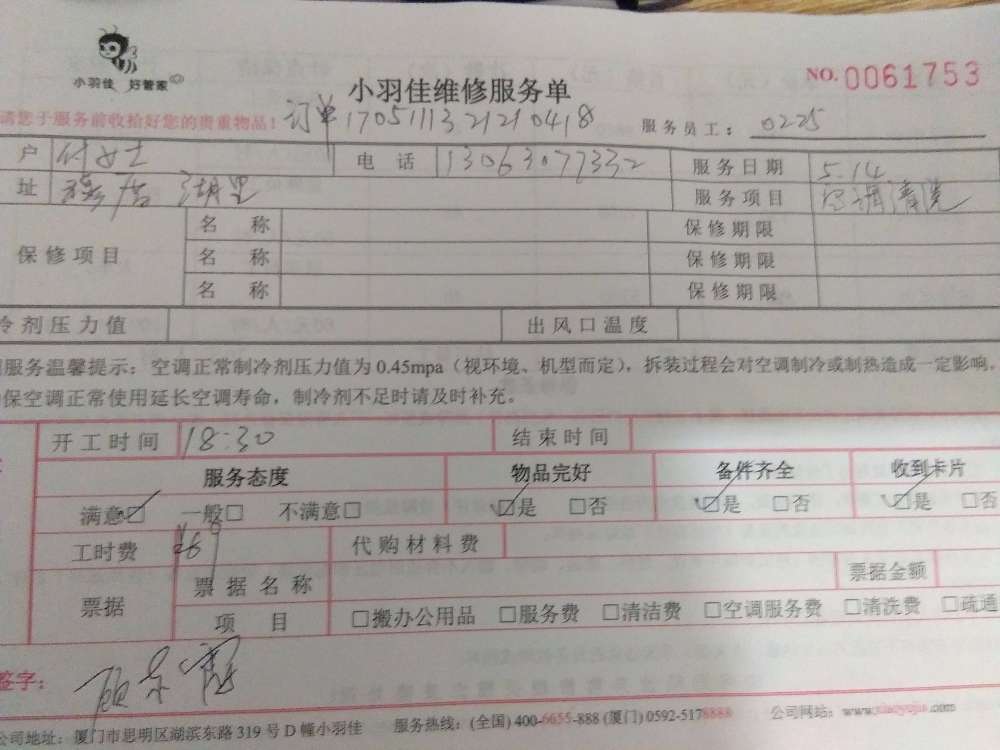 小羽佳 好管家
小羽佳维修服务单
NO. 0061753
请您于服务前收拾好您的贵重物品！ 订单1705111321210418 服务员工： 0225
户 付女士 电话 13063077332 服务日期 5.14
址 湖里 服务项目 空调清洗
保修项目 名称 保修期限
名称 保修期限
名称 保修期限
冷剂压力值 出风口温度
服务温馨提示：空调正常制冷剂压力值为0.45mpa（视环境、机型而定），拆装过程会对空调制冷或制热造成一定影响。
保空调正常使用延长空调寿命，制冷剂不足时请及时补充。
开工时间 18:30 结束时间
服务态度 物品完好 备件齐全 收到卡片
满意☑ 一般□ 不满意□ ☑是 □否 ☑是 □否 ☑是 □否
工时费 代购材料费
票据 票据名称 票据金额
项目 □搬办公用品 □服务费 □清洁费 □空调服务费 □清洗费 □疏通
签字：
公司地址：厦门市思明区湖滨东路319号D幢小羽佳 服务热线：(全国) 400-6655-888 (厦门) 0592-5178888 公司网站：www.xiaoyujia.com